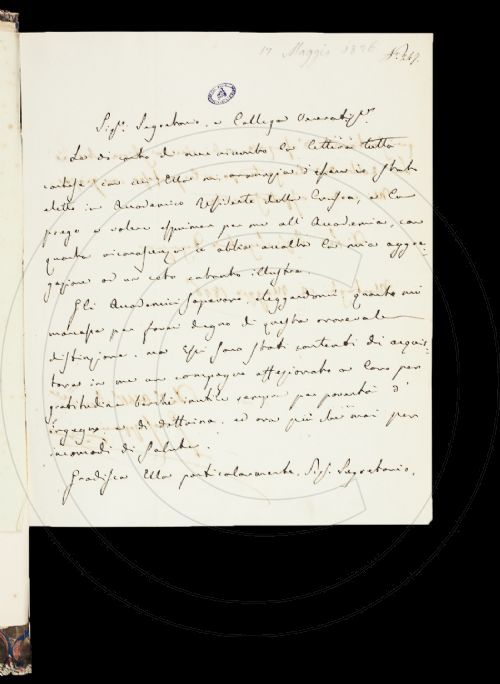 17 Maggio 1836
Sig.r Segretario, e Collega Veneratis.o
Lo di conto di aver ricevuto la lettera tutta
cortese con cui Ella mi annunzia d'essere io stato
eletto in Accademico Residente della Crusca, e La
prego a volere esprimere per me all' Accademia, con
quanta riconoscenza io abbia accolto la mia aggre-
gazione ad un ceto cotanto illustre.
Gli Accademici sapevano, eleggendomi, quanto mi
mancasse per farmi degno di questa onorevole
distinzione, ma Essi sono stati contenti di acquis-
tare in me un compagno affezionato a Loro per
gratitudine, benchè inutile sempre per povertà d'
ingegno e di dottrina, ed ora più che mai per
incomodi di salute.
Gradisca Ella particolarmente, Sig. Segretario,